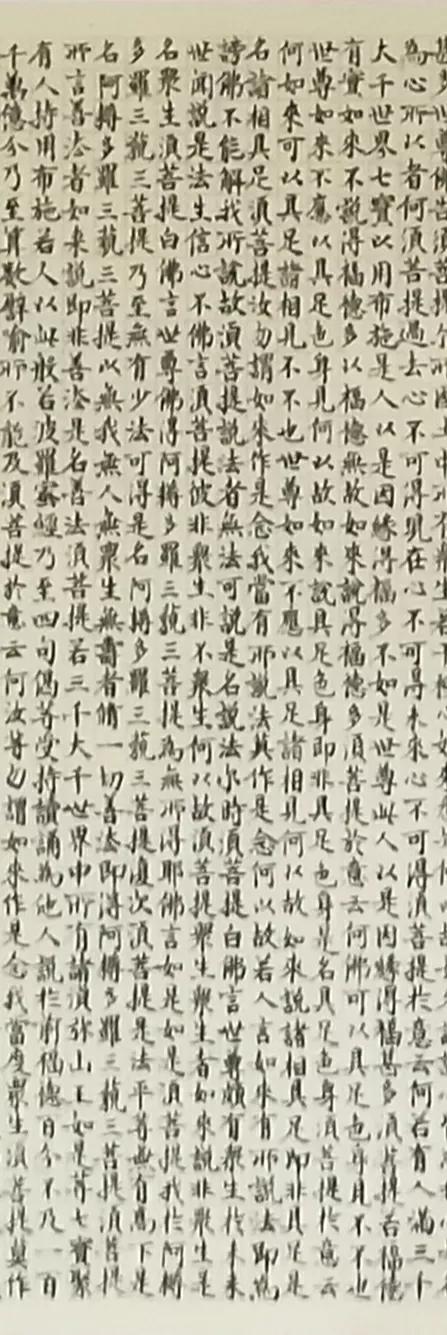 為心所以者何須菩提過去心不可得現在心不可得未來心不可得須菩提於意云何若有人滿三千
大千世界七寶以用布施是人以是因緣得福多不如是世尊此人以是因緣得福甚多須菩提若福德
有實如來不說得福德多以福德無故如來說得福德多須菩提於意云何佛可以具足色身見不不也
世尊如來不應以具足色身見何以故如來說具足色身即非具足色身是名具足色身須菩提於意云
何如來可以具足諸相見不不也世尊如來不應以具足諸相見何以故如來說諸相具足即非具足是
名諸相具足須菩提汝勿謂如來作是念我當有所說法莫作是念何以故若人言如來有所說法即為
謗佛不能解我所說故須菩提說法者無法可說是名說法尒時須菩提白佛言世尊頗有眾生於未來
世聞說是法生信心不佛言須菩提彼非眾生非不眾生何以故須菩提眾生眾生者如來說非眾生是
名眾生須菩提白佛言世尊佛得阿耨多羅三藐三菩提為無所得耶佛言如是如是須菩提我於阿耨
多羅三藐三菩提乃至無有少法可得是名阿耨多羅三藐三菩提復次須菩提是法平等無有高下是
名阿耨多羅三藐三菩提以無我無人無眾生無壽者脩一切善法即得阿耨多羅三藐三菩提須菩提
所言善法者如來說即非善法是名善法須菩提若三千大千世界中所有諸須弥山王如是等七寶聚
有人持用布施若人以此般若波羅蜜經乃至四句偈等受持讀誦為他人說於前福德百分不及一百
千萬億分乃至算數譬喻所不能及須菩提於意云何汝等勿謂如來作是念我當度眾生須菩提莫作